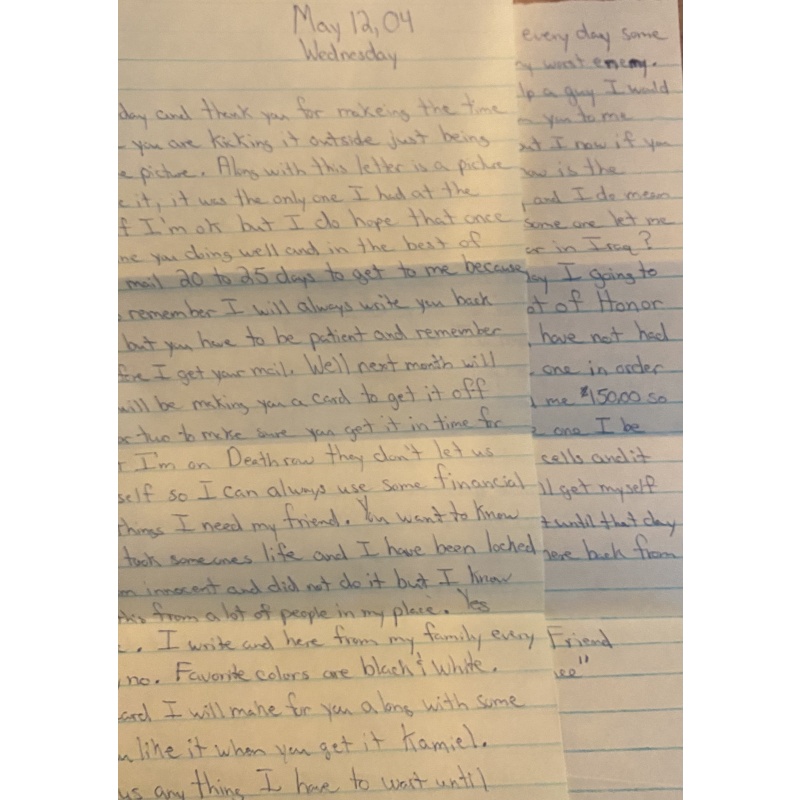 May 12, 04
Wednesday
day and thank you for makeing the time
you are kicking it outside just being
e picture. Along with this letter is a picture
e it, it was the only one I had at the
f I'm ok but I do hope that once
ne you doing well and in the best of
mail 20 to 25 days to get to me because
remember I will always write you back
but you have to be patient and remember
fre I get your mail. We'll next month will
will be making you a card to get it off
or two to make sure you get it in time for
I'm on Deathrow they don't let us
self so I can always use some financial
things I need my friend. You want to know
took someones life and I have been locked
m innocent and did not do it but I know
this from a lot of people in my place. Yes
I write and here from my family every
no. Favorite colors are black & white.
ard I will make for you along with some
u like it when you get it Kamiel.
us any thing I have to wait until
every day some
y worst enemy.
lp a guy I would
you to me
ut I now if you
ow is the
, and I do mean
some one let me
ar in Iraq?
ay I going to
ot of Honor
, have not had
one in order
d me $150.00 so
e one I be
cells and it
ll get myself
t until that day
here back from
Friend
ee"